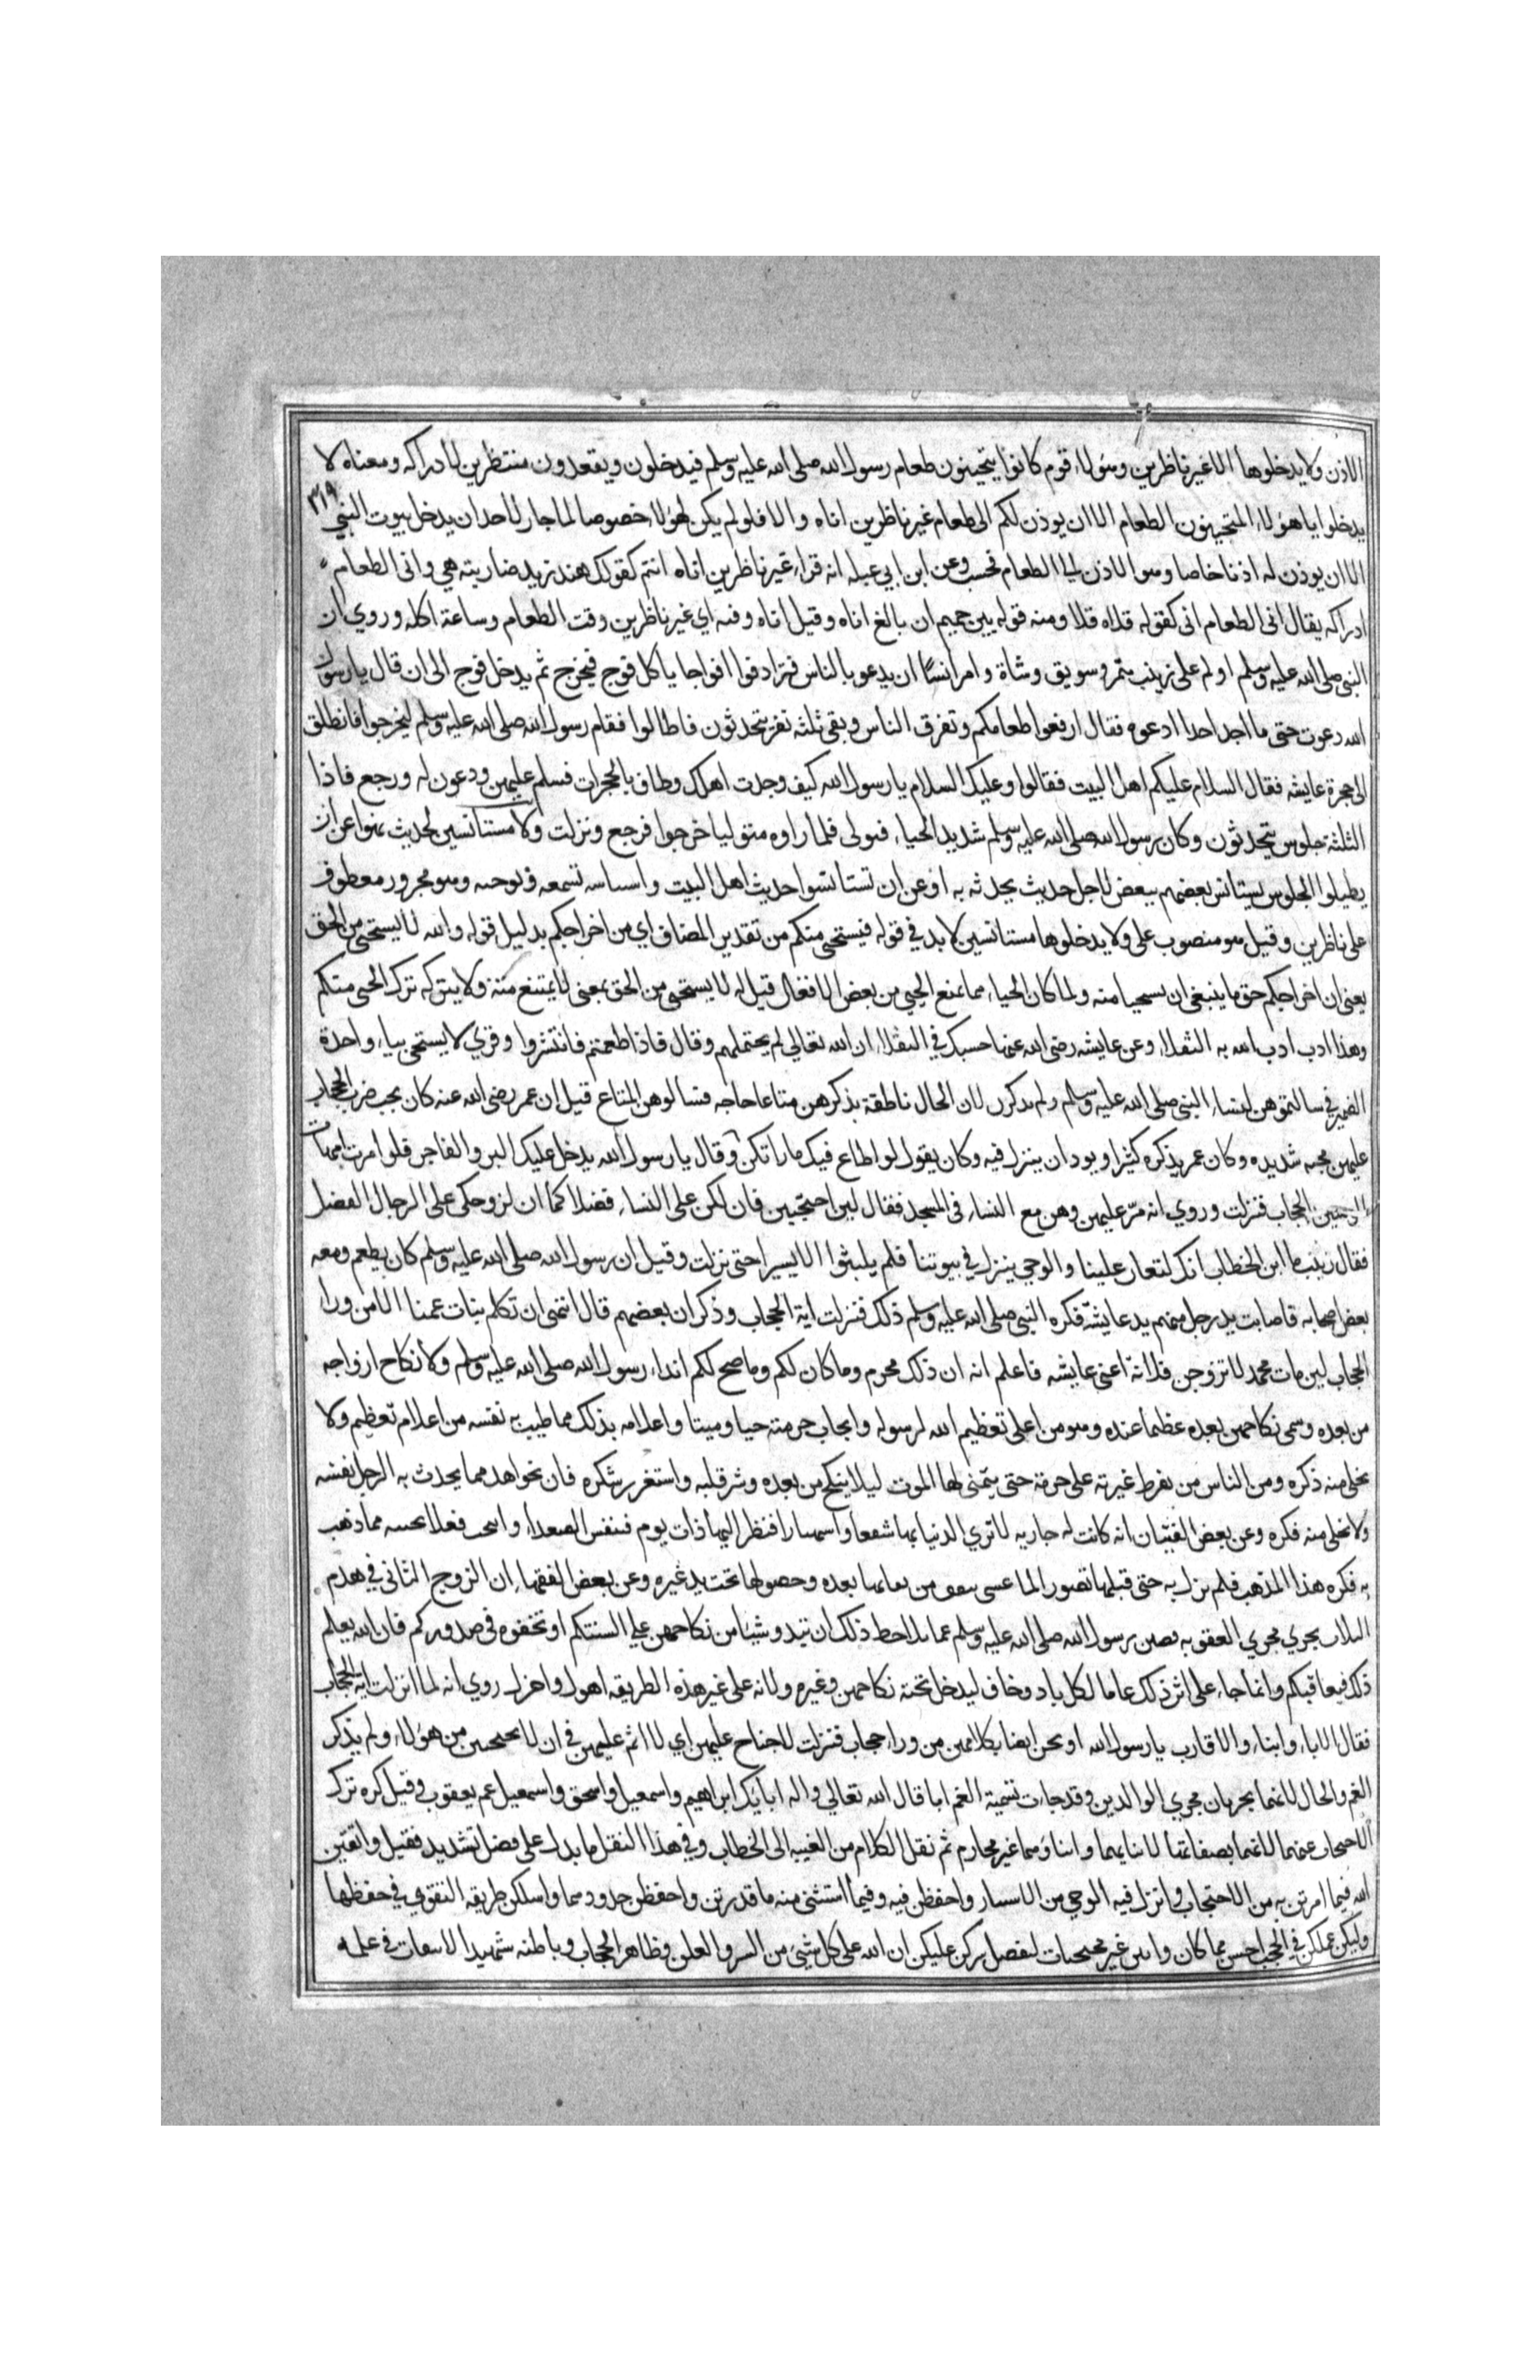 الاذن ولا يدخلوها الا غير ناظرين وهؤلاء قوم كانوا يتحينون طعام رسول الله صلى الله عليه وسلم فيدخلون ويقعدون منتظرين لادراكه ومعناه لا
٣١٩
يدخلوا يا هؤلاء المتحينون الطعام الا ان يوذن لكم الى طعام غير ناظرين اناه والا فلو لم يكن لهؤلاء خصوصا لما جاز لاحد ان يدخل بيوت النبي
الا ان يوذن له اذنا خاصا وهو الاذن الى الطعام فحسب وعن ابن ابي عبله انه قراء غير ناظرين اناه انتم كقولك هند زيد ضاربته هي وانى الطعام
ادراكه يقال انى الطعام انى كقوله قلاه قلا ومنه قوله بين حميم ان بالغ اناه وقيل اناه وقته اي غير ناظرين وقت الطعام وساعة اكله وروي ان
النبي صلى الله عليه وسلم اولم على زينب بتمر وسويق وشاة وامر انسًا ان يدعو بالناس فترادفوا افواجا ياكل فوج فيخرج ثم يدخل فوج الى ان قال يا رسول
الله دعوت حتى ما اجد احدا ادعوه فقال ارفعوا طعامكم وتفرق الناس وبقى ثلثه نفر يتحدثون فاطالوا فقام رسول الله صلى الله عليه وسلم ليخرجوا فانطلق
الى حجرة عايشه فقال السلام عليكم اهل البيت فقالوا وعليك السلام يا رسول الله كيف وجدت اهلك وطاف بالحجرات فسلم عليهن ودعون له ورجع فاذا
الثلثة جلوس يتحدثون وكان رسول الله صلى الله عليه وسلم شديد الحياء فتولى فلما راوه متوليا خرجوا فرجع ونزلت ولا مستانسين لحديث نهوا عن ان
يطيلوا الجلوس يستانس بعضهم ببعض لاجل حديث يحدثه به او عن ان تستانسوا حديث اهل البيت و تسمعه و وهو مجرور معطوف
على ناظرين وقيل هو منصوب على ولا يدخلوها مستانسين لا بد في قوله فيستحيى منكم من تقدير المضاف اي من اخراجكم بدليل قوله والله لا يستحيى من الحق
يعنى ان اخراجكم حق ما ينبغي ان يستحيا منه ولما كان الحياء مما يمنع الحيي من بعض الافعال قيل له لا يستحيى من الحق بمعنى لا يمتنع منه ولا يتركه ترك الحيى منكم
وهذا ادب ادب الله به الثقلاء وعن عايشه رضى الله عنها حسبك في الثقلاء ان الله تعالى لم يحتملهم وقال فاذا طعمتم فانتشروا وقري لا يستحى بياء واحدة
الضمير في سالتموهن لنساء النبي صلى الله عليه وسلم ولم يذكرن لان الحال ناطقة بذكرهن متاعا حاجه فسالوهن المتاع قيل ان عمر رضى الله عنه كان يحب ضرب الحجاب
عليهن محبه شديده وكان عمر يذكره كثيرا ويود ان ينزل فيه وكان يقول لو اطاع فيكن ما راتكن وقال يا رسول الله يدخل عليك البر والفاجر فلو امرت امهات
المومنين الحجاب فنزلت وروي انه مرّ عليهن وهن مع النساء في المسجد فقال لين احتجبين فان لكن على النساء فضلا كما ان لزوجكن على الرجال الفضل
فقال زينب يا ابن الخطاب انك لتغار علينا والوحي ينزل في بيوتنا فلم يلبثوا الا يسيرا حتى نزلت وقيل ان رسول الله صلى الله عليه وسلم كان يطعم ومعه
بعض اصحابه فاصابت يد رجل منهم يد عايشه فكره النبي صلى الله عليه وسلم ذلك فنزلت اية الحجاب وذكر ان بعضهم قال انتهى ان تكلم بنات عمنا الا من ورا
الحجاب لين مات محمد لاتزوجن فلانة اعني عايشه فاعلم انه ان ذلك محرم وما كان لكم وما صح لكم اذاء رسول الله صلى الله عليه وسلم ولا نكاح ازواجه
من بعده وسمى نكاحهن بعده عظيما عنده وهو من اعلى تعظيم الله لرسوله وايجاب حرمته حيا وميتا واعلامه بذلك مما طيب به نفسه من اعلام تعظيم ولا
يخلى منه ذكره ومن الناس من يفرط غيرته على حرمته حتى يتمنى لها الموت ليلا ينكح من بعده وشر قلبه واستغرر شكره فان نحو اهد مما يحدث به الرجل نفسه
ولا يخلى منه فكره وعن بعض الفتيان انه كانت له جاريه لا تري الدنيا بها شغفا و فنظر اليها ذات يوم فتنفس الصعداء و فعلا مما ذهب
به فكره هذا المذهب فلم يزل به حتى قتلها تصورا لما عسى من بعده وحصولها تحت يد غيره وعن بعض الفقهاء ان الزوج الثاني في هدم
الثلاث يجري مجري العقوبه رسول الله صلى الله عليه وسلم عما ذلك ان تبدو شيئا من نكاحهن على السنتكم او تخفوه في صدوركم فان الله يعلم
ذلك فيعاقبكم وانما جاء على اثر ذلك عاما لكل باد وخاف ليدخل تحته نكاحهن وغيره ولانه على غير هذه الطريقه اهول واجزل روي انه لما انزلت اية الحجاب
فقال الاباء وابناء والاقارب يا رسول الله او نحن ايضا بكلامهن من وراء حجاب فنزلت لا جناح عليهن اي لا اثم عليهن في ان لا يحتجبن من هؤلاء ولم يذكر
العم والخال لانهما يجريان مجري الوالدين وقد جات تسمية العم ابا قال الله تعالى واله ابايك ابراهيم واسمعيل واسحق واسمعيل عم يعقوب وقيل كره ترك
الاحتجاب عنهما لانهما يصفانها لابنايهما وابناؤهما غير محارم ثم نقل الكلام من الغيبه الى الخطاب وفي هذا النقل ما يدل على فضل تشديد فقيل واتقين
الله فيما امرتن به من الاحتجاب وانزل فيه الوحي من الاستتار واحفظن فيه وفيما استثنى منه ما قدرتن واحفظن حدودهما واسلكن طريقه التقوي في حفظها
وليكن عملكن في الحجب احسن مما كان غير محتجبات ليفضل سركن عليكن ان الله على كل شيئ من السر والعلن وظاهر الحجاب وباطنه شهيدا في علمه